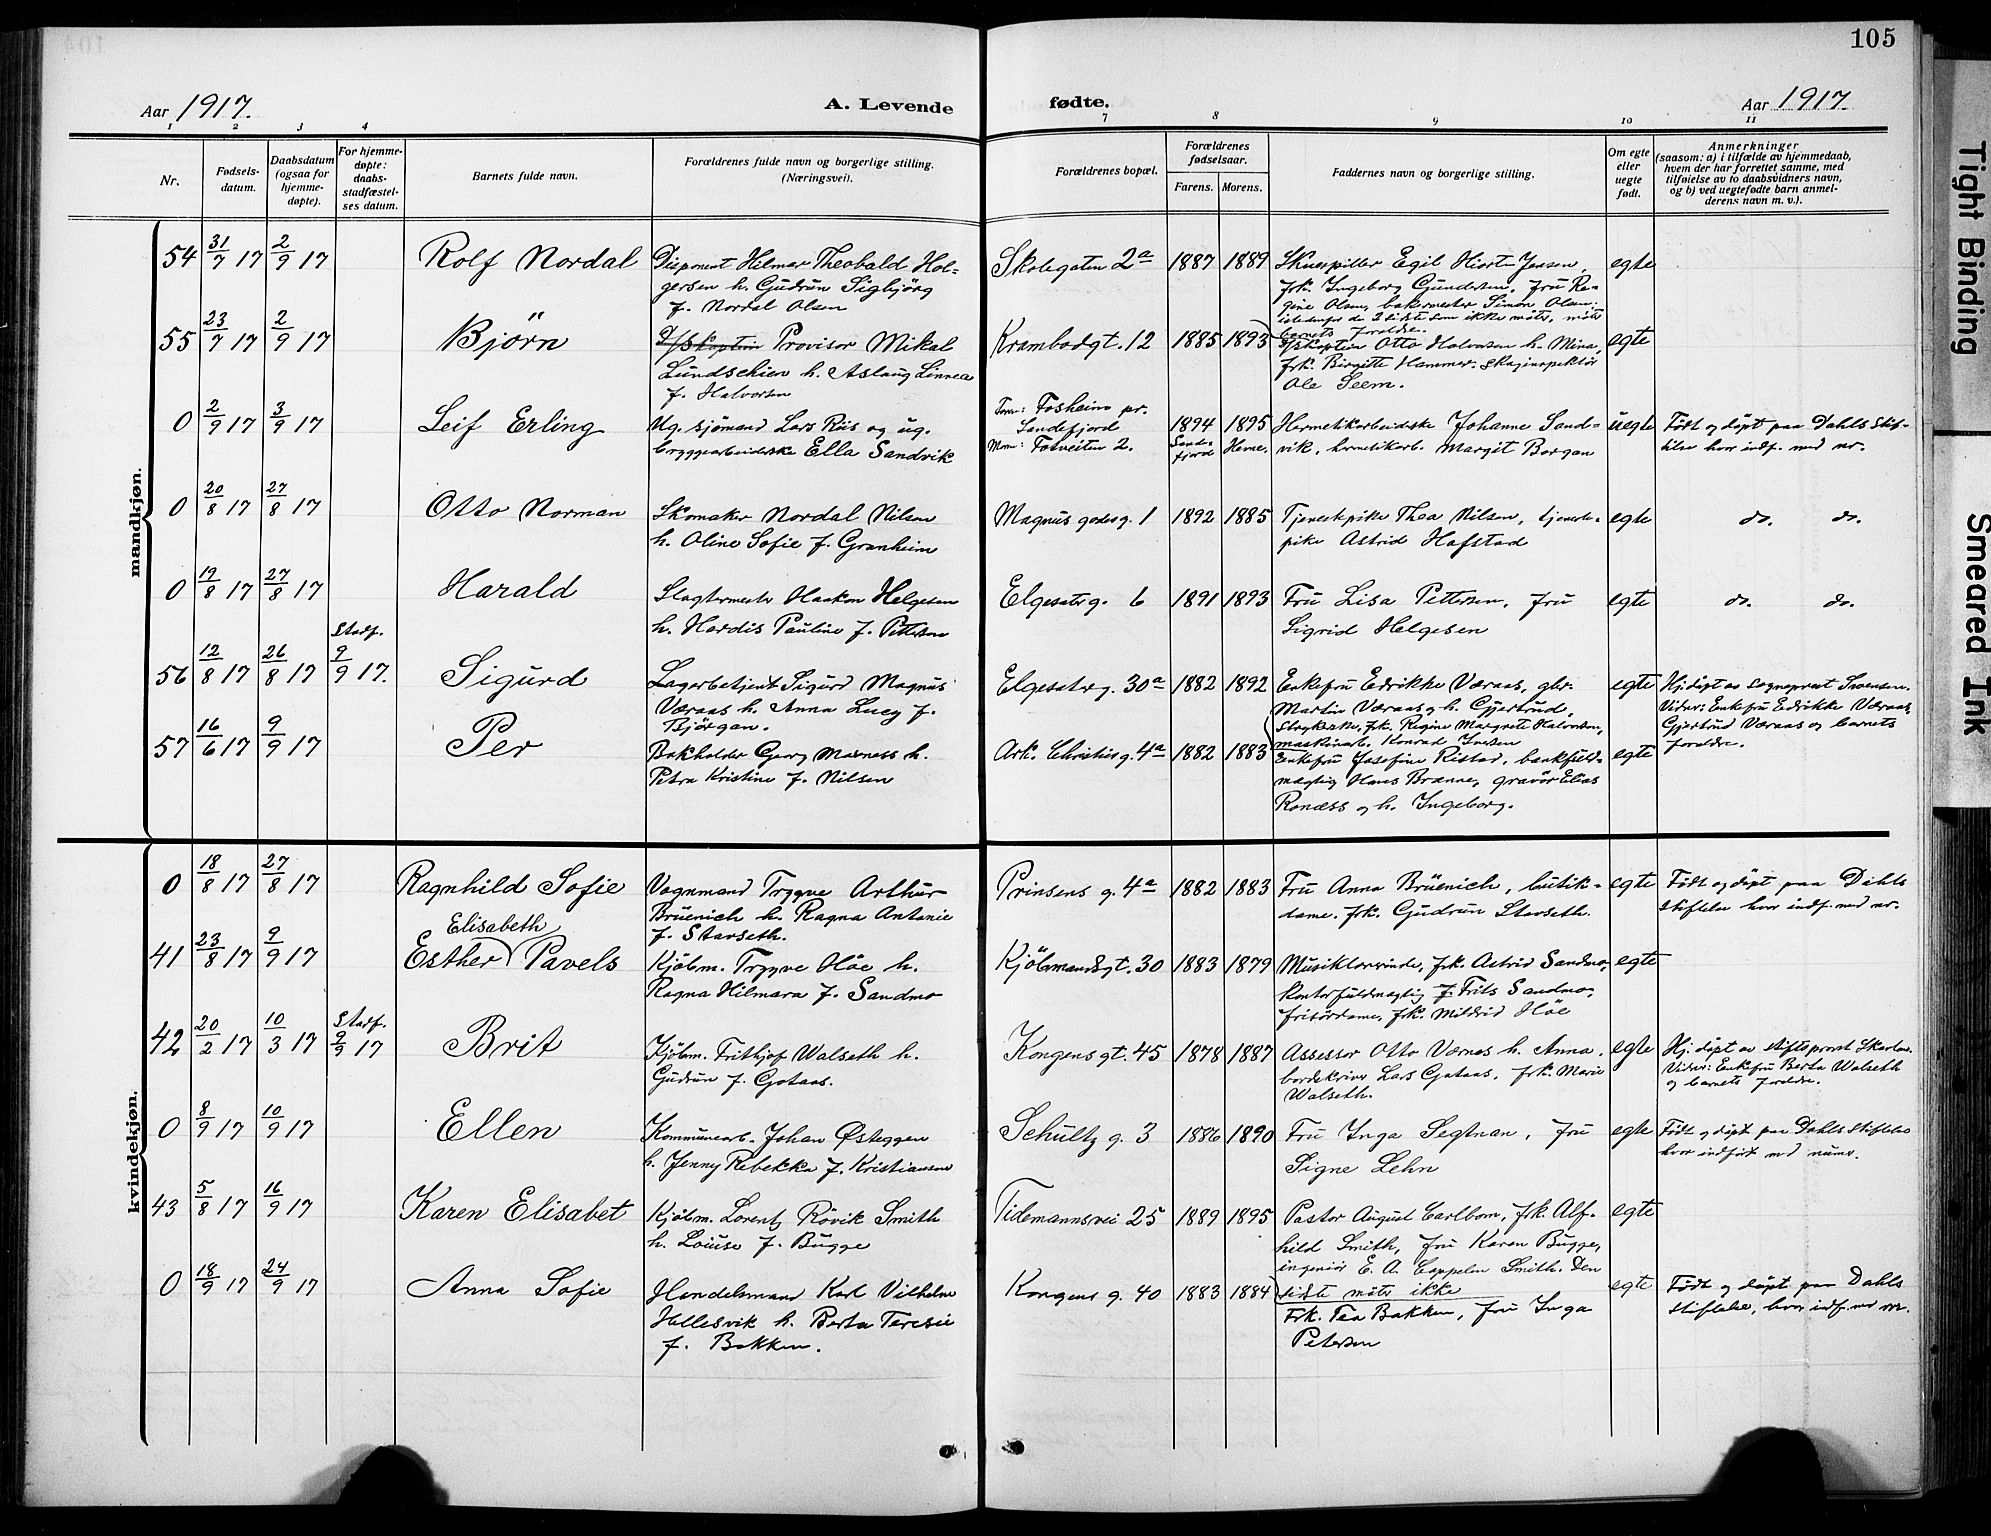 105
Aar 1917.
A. Levende
fødte.
Aar 1917.
1 2 3 4 7 8 9 10 11
Nr.
Fødsels-
datum.
Daabsdatum
(ogsaa for
hjemme-
døpte).
For hjemme-
døpte:
daabs-
stadfæstel-
ses datum.
Barnets fulde navn.
Forældrenes fulde navn og borgerlige stilling.
(Næringsvei.)
Forældrenes bopæl.
Forældrenes
fødselsaar.
Farens. Morens.
Faddernes navn og borgerlige stilling.
Om egte
eller
uegte
født.
Anmerkninger
(saasom: a) i tilfælde av hjemmedaab,
hvem der har forrettet samme, med
tilføielse av to daabsvidners navn,
og b) ved uegtefødte barn anmel-
derens navn m. v.).
mandkjøn.
54 31/7 17 2/9 17 Rolf Nordal
Disponent Hilmar Theobald Hol-
gersen h. Gudrun Sigbjørg
f. Nordal Olsen
Skolegaten 2a 1887 1889
Skuespiller Egil Hjorth Jensen,
frk. Ingeborg Gundersen, fru Ra-
gine Olsen, bakermester Simon Olsen.
istedenfor de 2 sidste som ikke møtte, møtte
barnets forældre.
egte
55 23/7 17 2/9 17 Bjørn
D/Skaptein Provisor Mikal
Lundschien h. Aslaug Linnea
f. Halvorsen
Krambodgt. 12 1885 1893
D/Skaptein Otto Halvorsen h. Mina,
frk. Birgitte Hammer, skoginspektør
Ole Seem.
egte
0 2/9 17 3/9 17 Leif Erling
Ug. sjømand Lars Riis og ug.
bryggearbeiderske Ella Sandvik
Faren: Fosheim pr.
Sandefjord
Moren: Tosveiten 2.
1894 Sand-
fjord
1895 Hevne.
Hermetikarbeiderske Johanne Sand-
vik, hermetikarb. Margit Borgan
uegte
Født og døpt paa Dahls Stif-
telse hvor indf. med nr.
0 20/8 17 27/8 17 Otto Norman
Skomaker Nordal Nilsen
h. Oline Sofie f. Granheim
Magnus godes g. 1 1892 1885
Tjenestpike Thea Nilsen, tjeneste-
pike Astrid Hafstad
egte
do. do.
0 19/8 17 27/8 17 Harald
Slagtermester Haakon Helgesen
h. Hardis Pauline f. Pettersen
Elgesæter g. 6 1891 1893
Fru Lisa Pettersen, fru
Sigrid Helgesen
egte
do. do.
56 12/8 17 26/8 17 Stadf. 9/9 17. Sigurd
Lagerbetjent Sigurd Magnus
Væraas h. Anna Lucy f.
Bjørgan.
Elgesæter g. 30a 1882 1892
Enkefru Edrikke Væraas, gbr.
Martin Væraas og h. Gjertrud,
Strykerske, frk. Regine Margrete Halvorsen,
maskinarb. Konrad Iversen
egte
Hj. døpt av sogneprest Svensen.
Vidner: Enkefru Edrikke Væraas,
Gjertrud Væraas og barnets
forældre.
57 16/6 17 9/9 17 Per
Bokholder Georg Mæness h.
Petra Kristine f. Nilsen
Ark. Christies g. 4a 1882 1883
Enkefru Josefine Ristad, bankfuld-
mægtig Hans Brænne, gravør Elias
Ronæss og h. Ingeborg.
egte
kvindekjøn.
0 18/8 17 27/8 17 Ragnhild Sofie
Vognmand Trygve Arthur
Brüenich h. Ragna Antonie
f. Stavseth.
Prinsens g. 4a 1882 1883
Fru Anna Brüenich, butik-
dame. frk. Gudrun Stavseth.
egte
Født og døpt paa Dahls
stiftelse hvor indf. med nr.
41 23/8 17 9/9 17 Esther Elisabeth Pavels
Kjøbm. Trygve Høe h.
Ragna Hilmara f. Sandmo
Kjøbmandsgt. 30 1883 1879
Musiklærerinde, frk. Astrid Sandmo,
Kontorfuldmægtig Frits Sandmo,
frisørdame, frk. Mildrid Høe
egte
42 20/2 17 10/3 17 Stadf. 9/9 17 Brit
Kjøbm. Frithjof Walseth h.
Gudrun f. Gotaas.
Kongens gt. 45 1878 1887
Assessor Otto Værnes h. Anna,
bordskriver Lars Gotaas, frk. Marie
Walseth.
egte
Hj. døpt av stiftsprovst
Vidner: Enkefru Berta Walseth
og barnets forældre.
0 8/9 17 10/9 17 Ellen
Kommunearb. Johan Østeggen
h. Jenny Rebekka f. Kristiansen
Schultz g. 3 1886 1890
Fru Inga Segtnan, fru
Signe Lehn
egte
Født og døpt paa Dahls Stiftelse
hvor indført med numr.
43 5/8 17 16/9 17 Karen Elisabet
Kjøbm. Lorentz Røvik Smith
h. Louise f. Bugge
Tidemannsvei 25 1889 1895
Pastor August Carlbom, frk. Alf-
hild Smith, fru Karen Bugge,
ingeniør E. A. Cappelen Smith. Den
sidste møtte ikke
egte
0 18/9 17 24/9 17 Anna Sofie
Handelsmand Karl Vilhelm
Hellesvik h. Berta Teresie
f. Bakken.
Kongens g. 40 1883 1884
Frk. Tea Bakken, fru Inga
Petersen
egte
Født og døpt paa Dahls
stiftelse, hvor indf. med nr.
Tight Binding
Smeared Ink